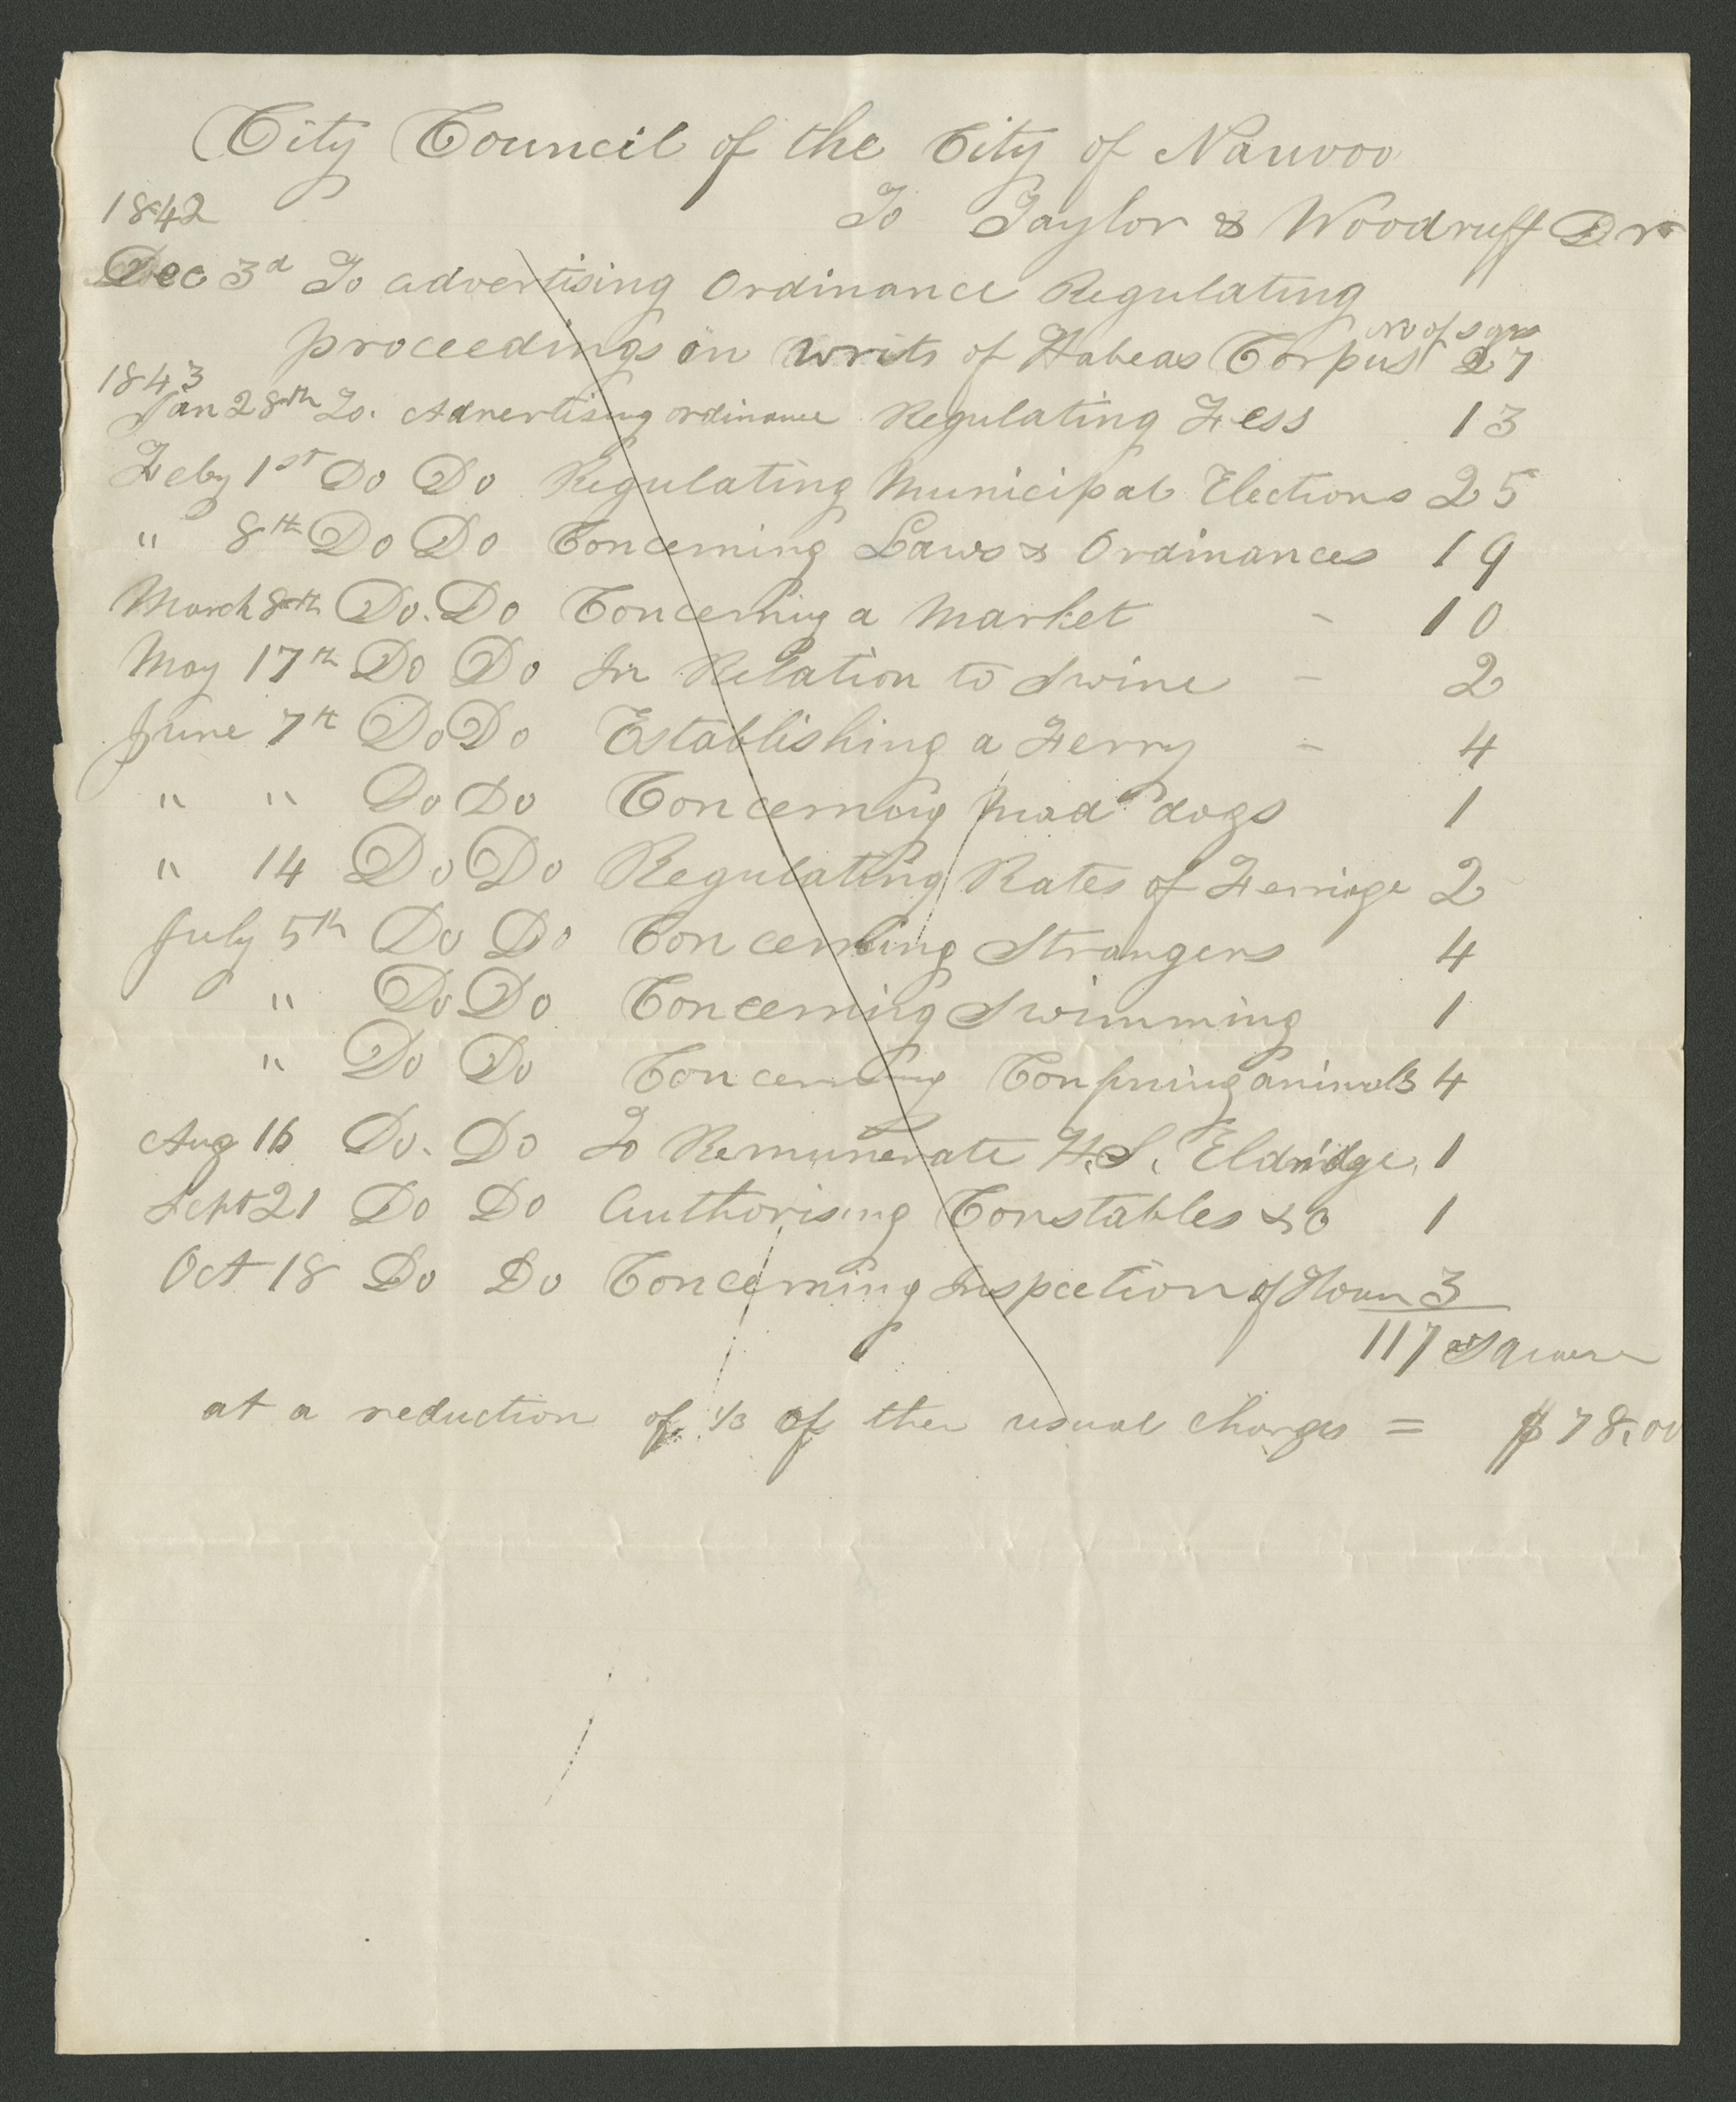 City Council of the City of Nauvoo
1842 To Taylor & Woodruff Dr
Dec 3d To advertising Ordinance Regulating
proceedings on writs of Habeas Corpus 27
No of sqrs
1843
Jan 28th To. Advertising ordinance Regulating Fess 13
Feby 1st Do Do Regulating Municipal Elections 25
" 8th Do Do Concerning Laws & Ordinances 19
March 8th Do. Do Concerning a Market - 10
May 17th Do Do In Relation to Swine - 2
June 7th Do Do Establishing a Ferry - 4
" " Do Do Concerning mad dogs 1
" 14 Do Do Regulating Rates of Ferriage 2
July 5th Do Do Concerning Strangers 4
" Do Do Concerning Swimming 1
" Do Do Concerning Confining animals 4
Aug 16 Do. Do To Remunerate H. S. Eldridge. 1
Sept 21 Do Do Authorising Constables &c 1
Oct 18 Do Do Concerning Inspection of flour 3
117 Squares
at a reduction of 1/3 of the usual charges = $78.00